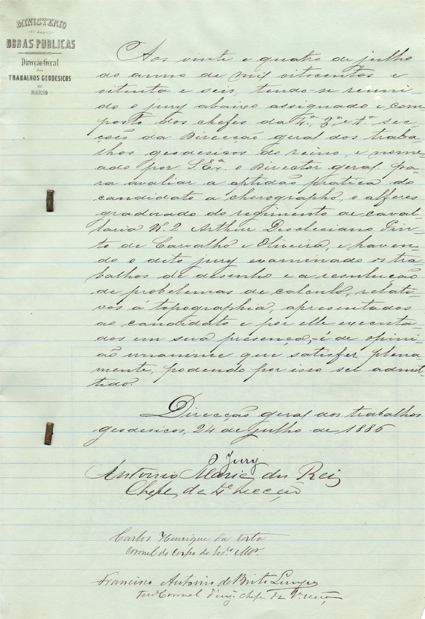 MINISTERIO
DAS
OBRAS PUBLICAS
Direcção Geral
DOS
TRABALHOS GEODESICOS
DO
REINO
Aos vinte e quatro de julho
do anno de mil oitocentos e
oitenta e seis, tendo-se reuni
do o jury abaixo assignado e com
posto dos chefes da 4ª 3ª e 1ª sec
ções da Direcção geral dos traba
lhos geodesicos do reino, e nome
ado por S. Exª o Director geral pa
ra avaliar a aptidão pratica do
candidato a chorographo, o alferes
graduado do regimento de caval
laria Nº 2 Arthur Deocleciano Pin
to de Carvalho e Oliveira, e haven
do o dito jury examinado os tra
balhos de desenho e a resolução
de problemas de calculo, relati
vos á topographia, apresentados
ao candidato e por elle executa
dos em sua presença, é de opini
ão unanime que satisfez plena
mente, podendo por isso ser admit
tido.
Direcção geral dos trabalhos
geodesicos, 24 de Julho de 1886
O Jury
Antonio Maria dos Reis
Chefe da 4ª secção
Carlos Henrique da Costa
Coronel do Corpo de
Francisco Antonio de Brito Limpo
Tenº Coronel d'engª Chefe da 1ª secção